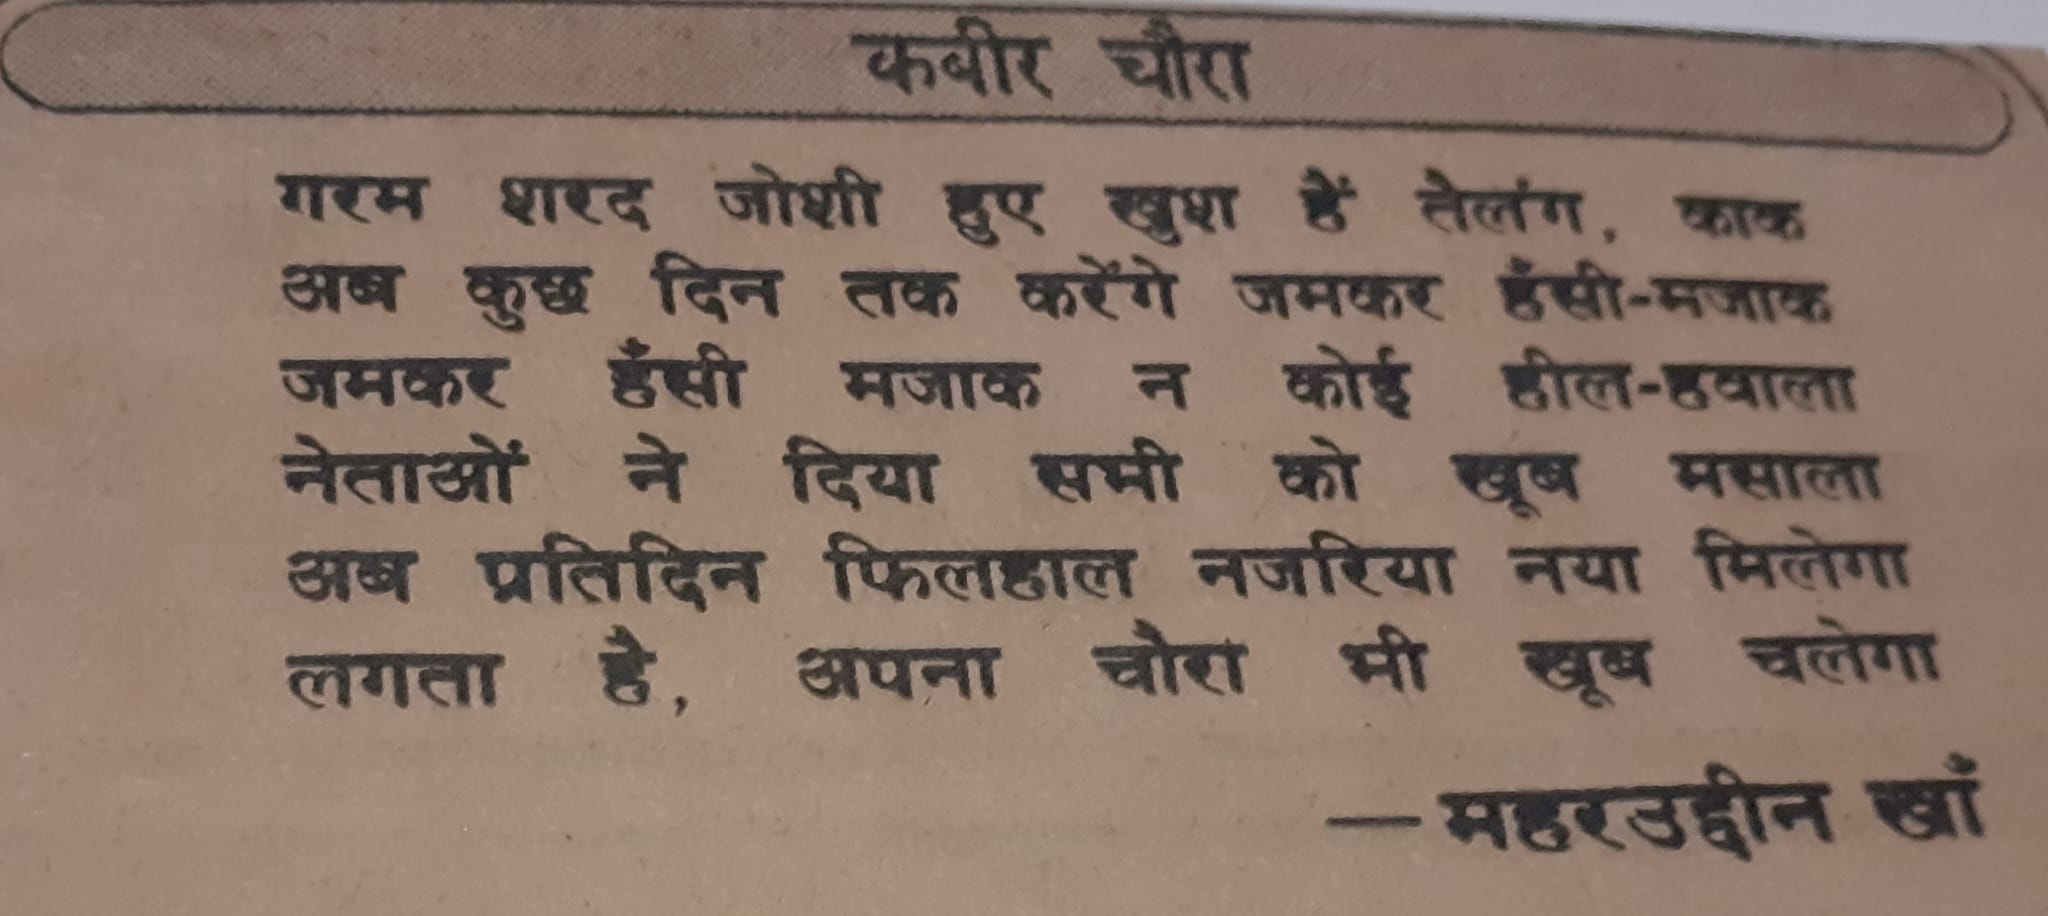 कबीर चौरा
गरम शरद जोशी हुए खुश हैं तेलंग, काक
अब कुछ दिन तक करेंगे जमकर हँसी-मजाक
जमकर हँसी मजाक न कोई हील-हवाला
नेताओं ने दिया सभी को खूब मसाला
अब प्रतिदिन फिलहाल नजरिया नया मिलेगा
लगता है, अपना चौरा भी खूब चलेगा
—महरउद्दीन खाँ